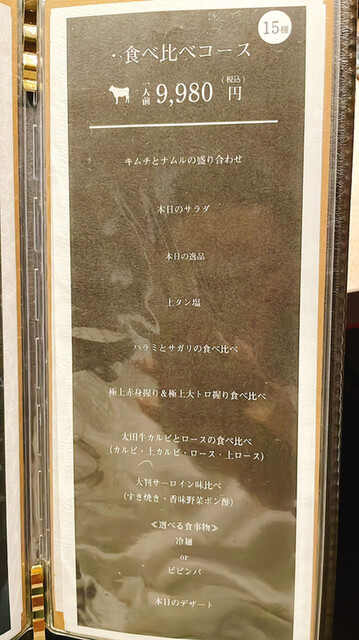 15種
・食べ比べコース
一人前 9,980円 (税込)
キムチとナムルの盛り合わせ
本日のサラダ
本日の逸品
上タン塩
ハラミとサガリの食べ比べ
極上赤身握り＆極上大トロ握り食べ比べ
太田牛カルビとロースの食べ比べ
(カルビ・上カルビ・ロース・上ロース)
大判サーロイン味比べ
(すき焼き・香味野菜ポン酢)
≪選べる食事物≫
冷麺
or
ビビンバ
本日のデザート